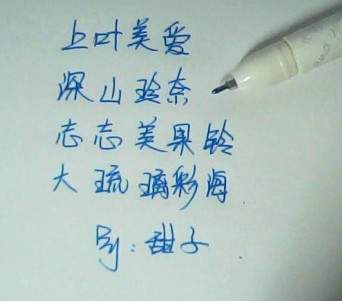 上叶美爱
深山玲奈
志志美果铃
大琉璃彩海
Bj:甜子